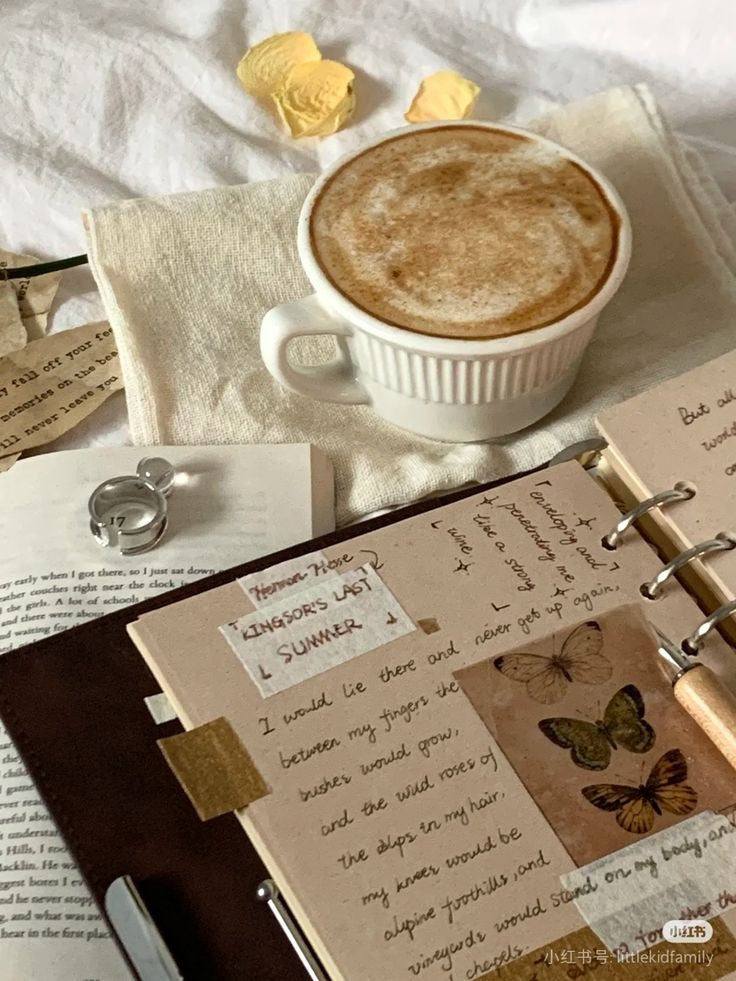 y fall off your fe
memories on the be
ill never leave you
17
ay early when I got there, so I just sat down
eather couches right near the clock in
the girls. A lot of schools
and there were about
and waiting for
they
child
I game
ever read
reful abou
Hills, I too
n understan
acklin. He wa
ggest bores I ev
nd he never stopp
, and what was aw
hear in the first place
Herman Hesse
「KINGSOR'S LAST
SUMMER」
「enveloping and
penetrating me
like a strong
wine」
I would lie there and never get up again,
between my fingers the
bushes would grow,
and the wild roses of
the alps in my hair,
my knees would be
alpine foothills, and
vineyards would stand on my body, and
chapels.
But all
world
小红书
小红书号: littlekidfamily